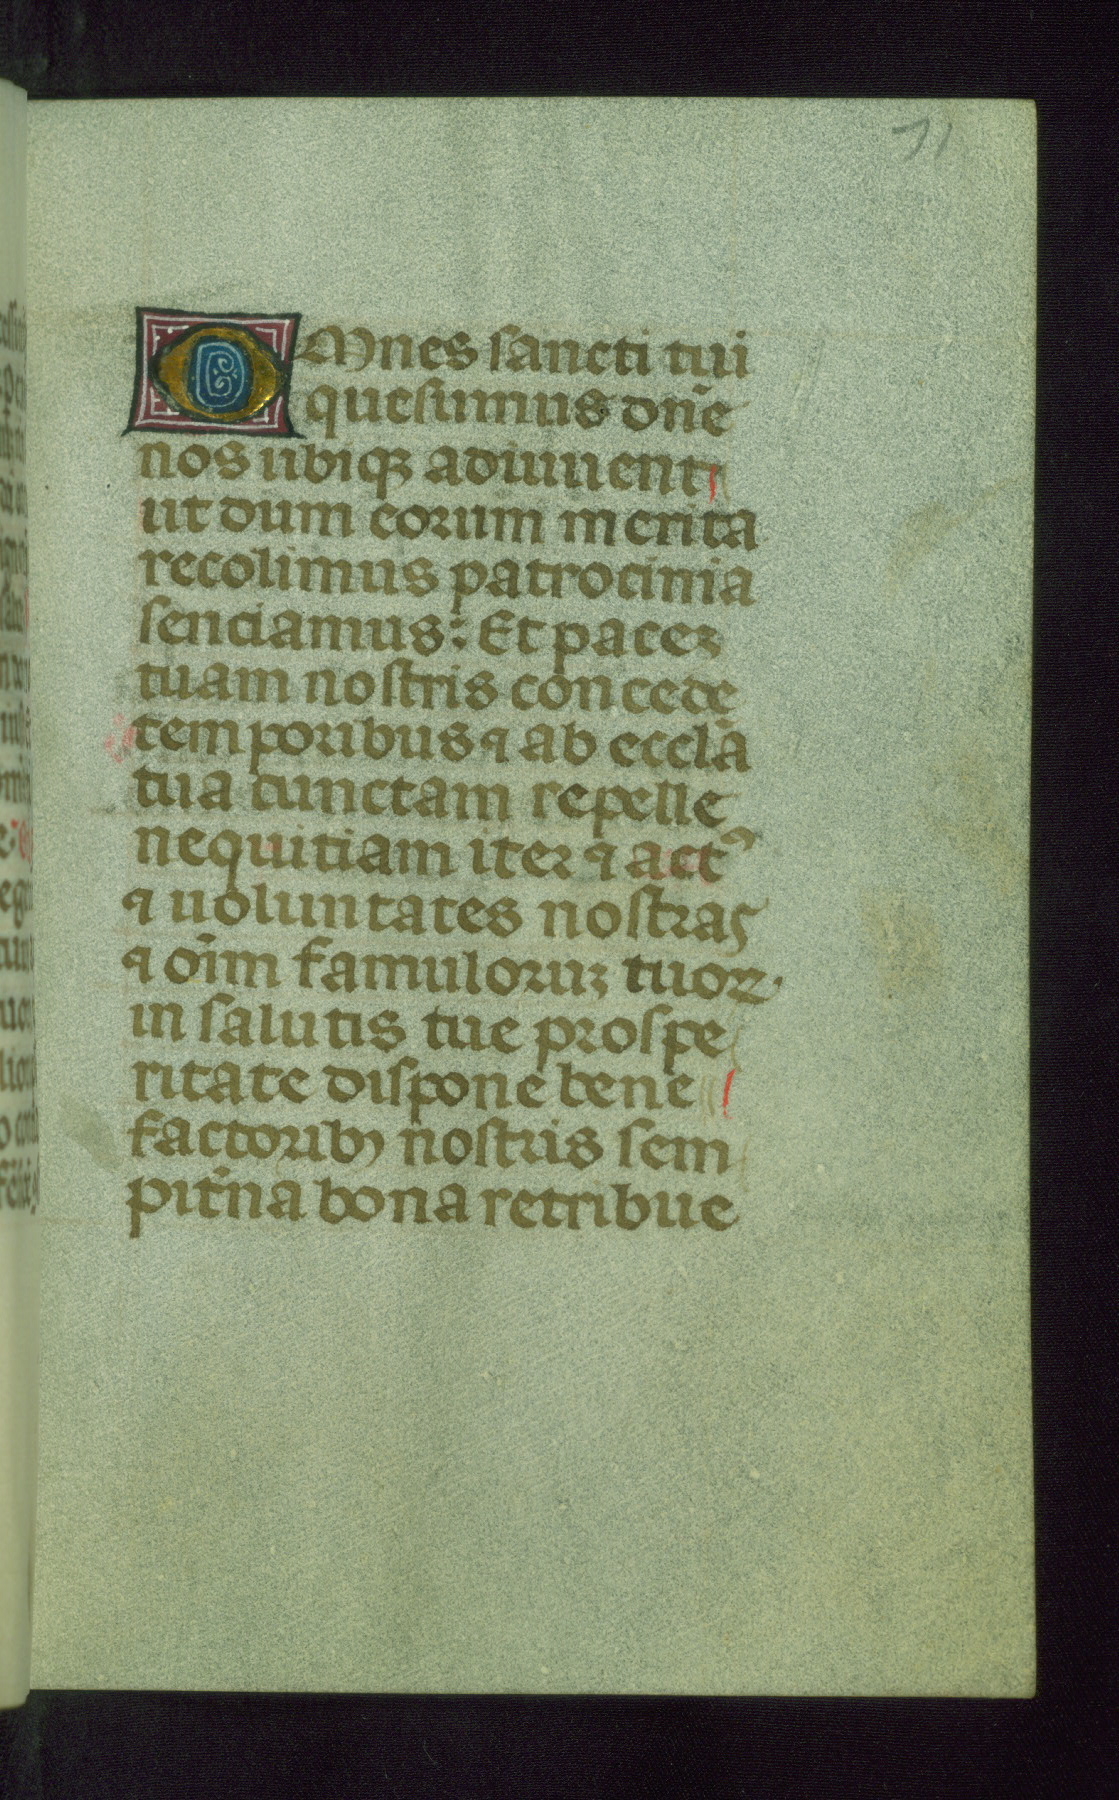 71
OMnes sancti tui
quesumus dn̄e
nos ubiqꝫ adiuuent
ut dum eorum merita
recolimus patrocinia
senciamus: Et pacez
tuam nostris concede
temporibus ⁊ ab eccl̄a
tua cunctam repelle
nequitiam iter ⁊ actꝰ
⁊ uoluntates nostras
⁊ oīm famuloruꝫ tuoꝝ
in salutis tue prospe
ritate dispone bene
factoribꝫ nostris sem
pit̄na bona retribue